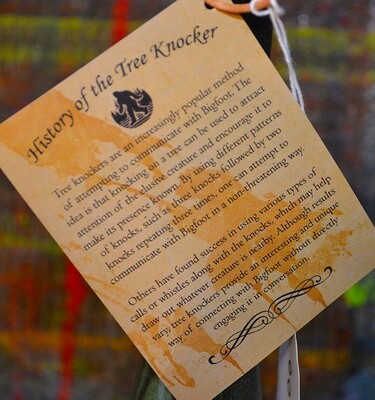 History of the Tree Knocker
Tree knockers are an increasingly popular method
of attempting to communicate with Bigfoot. The
idea is that knocking on a tree can be used to attract
attention of the elusive creature and encourage it to
make its presence known. By using different patterns
of knocks, such as three knocks followed by two
knocks repeating three times, one can attempt to
communicate with Bigfoot in a non-threatening way.
Others have found success in using various types of
calls or whistles along with the knocks, which may help
draw out whatever creature is nearby. Although results
vary, tree knockers provide an interesting and unique
way of connecting with Bigfoot without directly
engaging it in conversation.